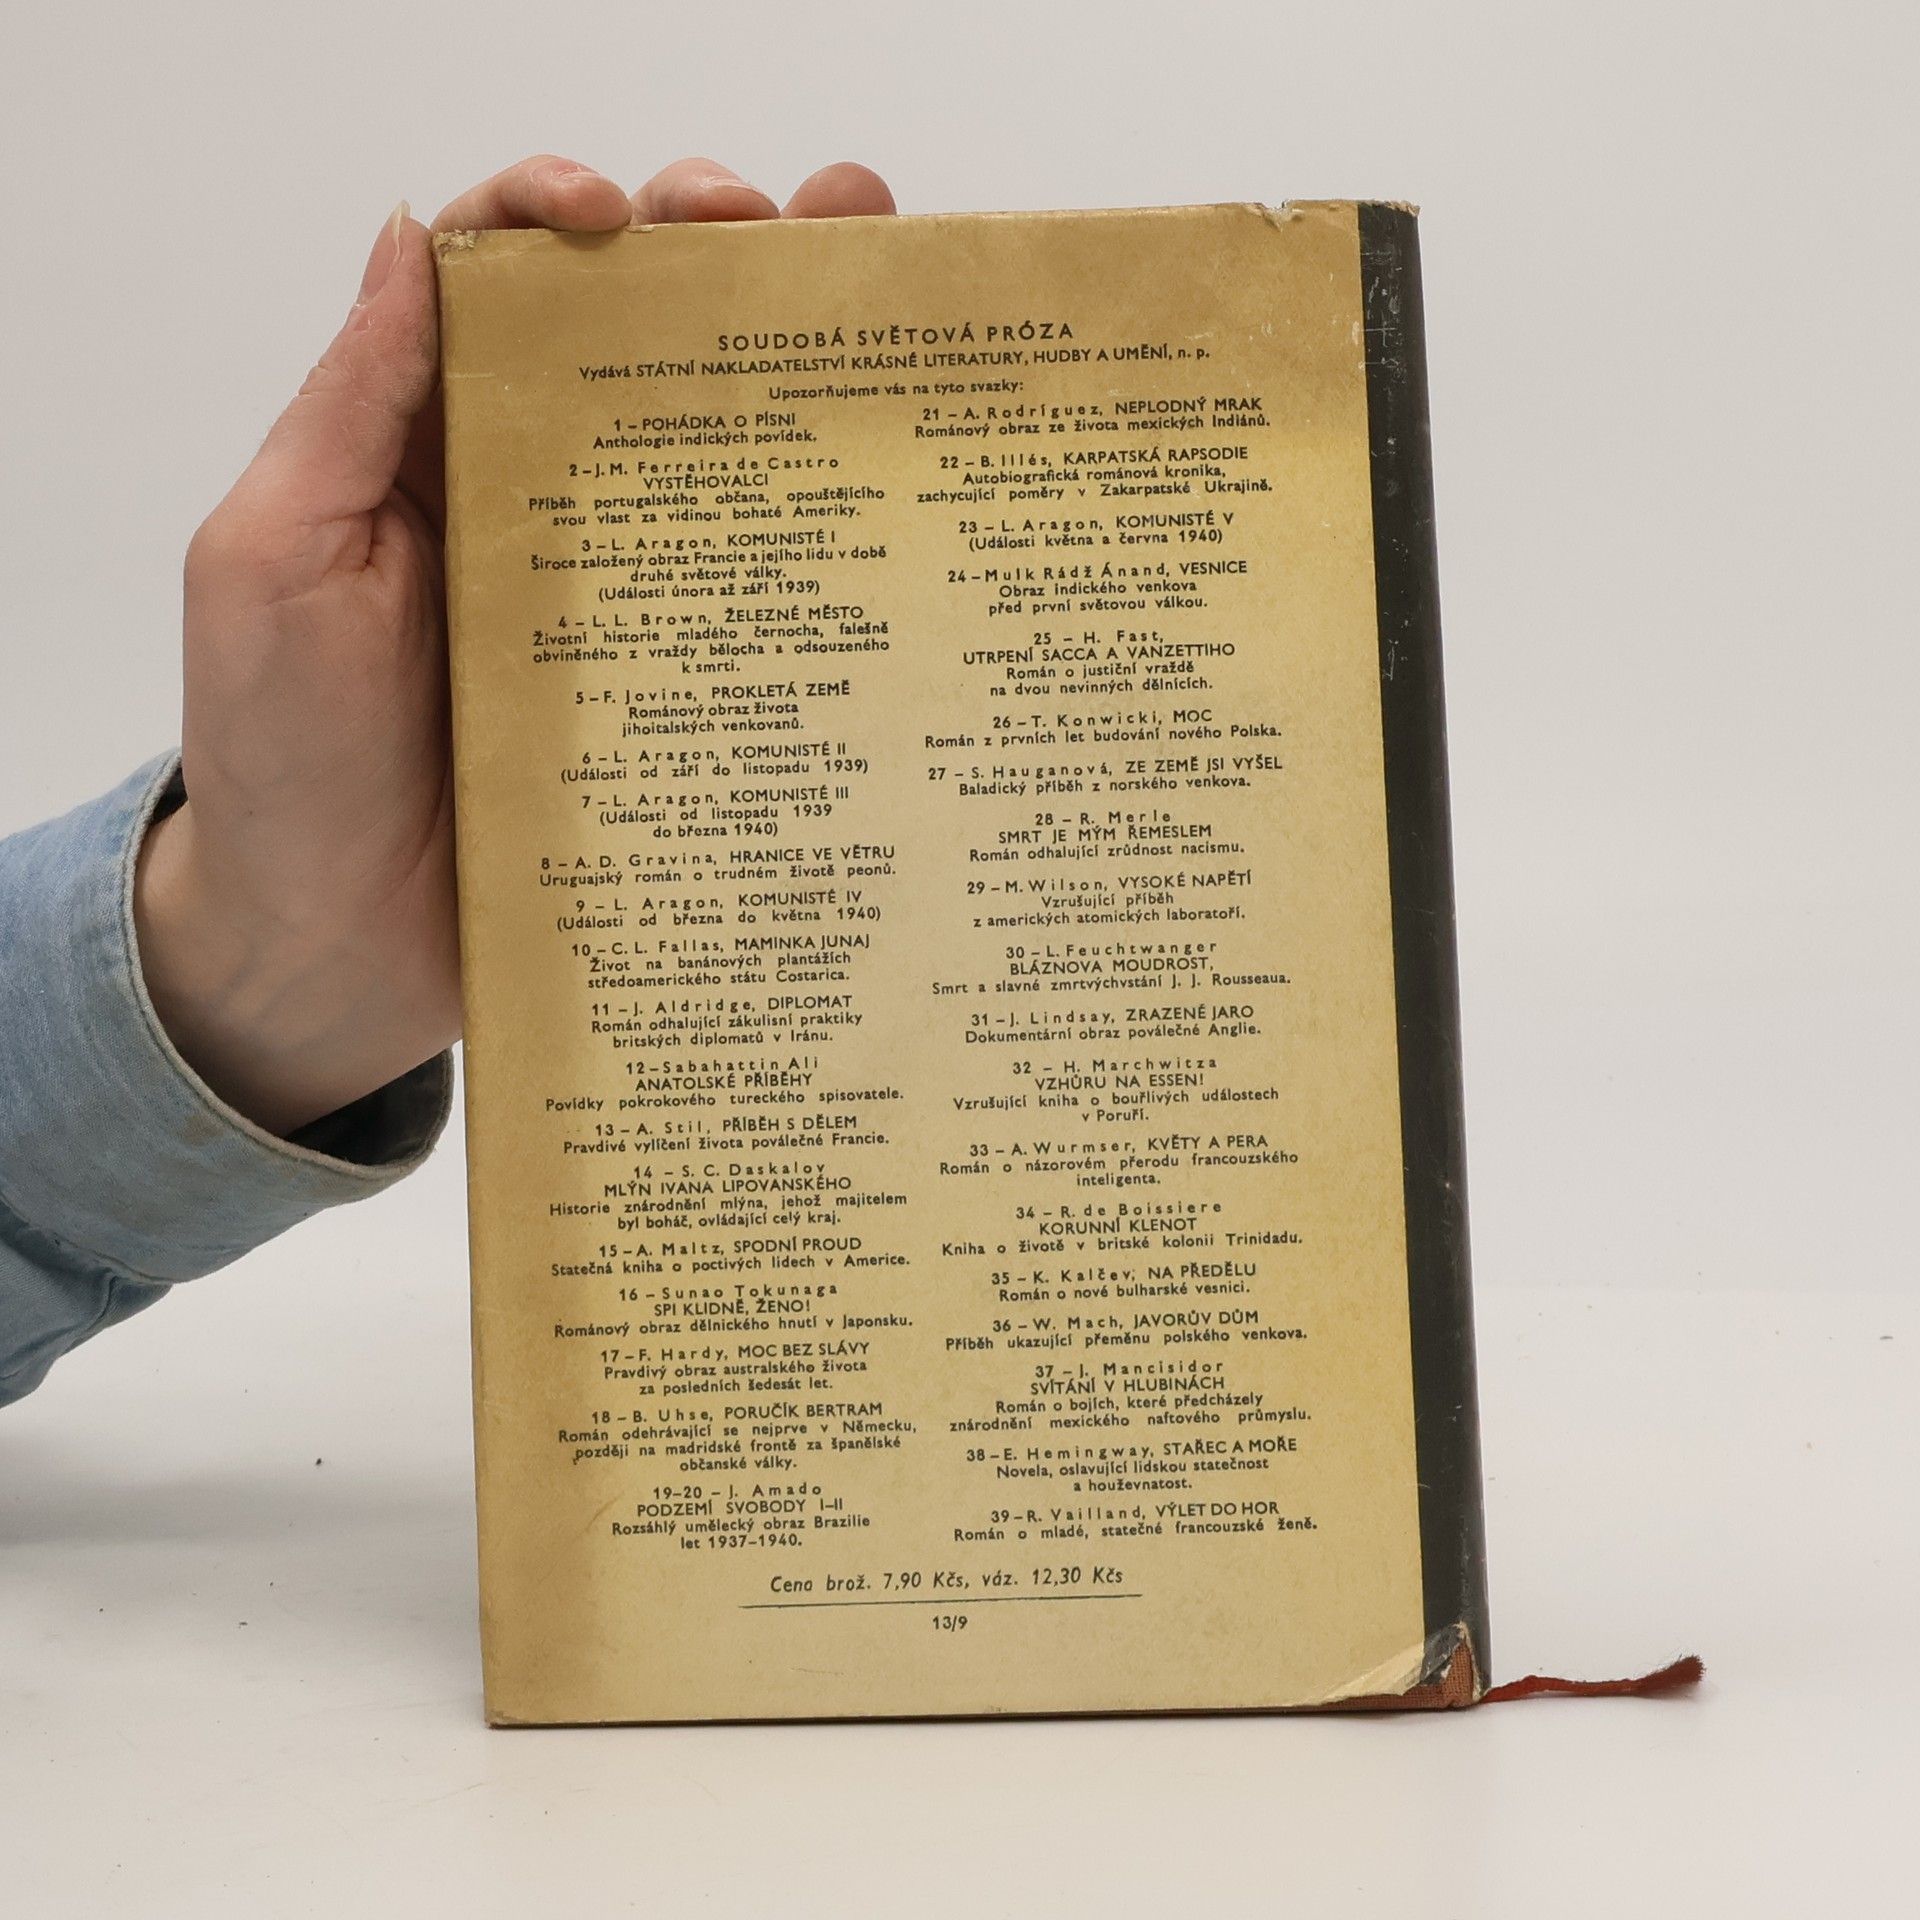 SOUDOBÁ SVĚTOVÁ PRÓZA
Vydává STÁTNÍ NAKLADATELSTVÍ KRÁSNÉ LITERATURY, HUDBY A UMĚNÍ, n. p.
Upozorňujeme vás na tyto svazky:
1 – POHÁDKA O PÍSNI
Anthologie indických povídek.
2 – J. M. Ferreira de Castro
VYSTĚHOVALCI
Příběh portugalského občana, opouštějícího
svou vlast za vidinou bohaté Ameriky.
3 – L. Aragon, KOMUNISTÉ I
Široce založený obraz Francie a jejího lidu v době
druhé světové války.
(Události února až září 1939)
4 – L. L. Brown, ŽELEZNÉ MĚSTO
Životní historie mladého černocha, falešně
obviněného z vraždy bělocha a odsouzeného
k smrti.
5 – F. Jovine, PROKLETÁ ZEMĚ
Románový obraz života
jihoitalských venkovanů.
6 – L. Aragon, KOMUNISTÉ II
(Události od září do listopadu 1939)
7 – L. Aragon, KOMUNISTÉ III
(Události od listopadu 1939
do března 1940)
8 – A. D. Gravina, HRANICE VE VĚTRU
Uruguajský román o trudném životě peonů.
9 – L. Aragon, KOMUNISTÉ IV
(Události od března do května 1940)
10 – C. L. Fallas, MAMINKA JUNAJ
Život na banánových plantážích
středoamerického státu Costarica.
11 – J. Aldridge, DIPLOMAT
Román odhalující zákulisní praktiky
britských diplomatů v Iránu.
12 – Sabahattin Ali
ANATOLSKÉ PŘÍBĚHY
Povídky pokrokového tureckého spisovatele.
13 – A. Stil, PŘÍBĚH S DĚLEM
Pravdivé vylíčení života poválečné Francie.
14 – S. C. Daskalov
MLÝN IVANA LIPOVANSKÉHO
Historie znárodnění mlýna, jehož majitelem
byl boháč, ovládající celý kraj.
15 – A. Maltz, SPODNÍ PROUD
Statečná kniha o poctivých lidech v Americe.
16 – Sunao Tokunaga
SPI KLIDNĚ, ŽENO!
Románový obraz dělnického hnutí v Japonsku.
17 – F. Hardy, MOC BEZ SLÁVY
Pravdivý obraz australského života
za posledních šedesát let.
18 – B. Uhse, PORUČÍK BERTRAM
Román odehrávající se nejprve v Německu,
později na madridské frontě za španělské
občanské války.
19–20 – J. Amado
PODZEMÍ SVOBODY I–II
Rozsáhlý umělecký obraz Brazilie
let 1937–1940.
21 – A. Rodríguez, NEPLODNÝ MRAK
Románový obraz ze života mexických Indiánů.
22 – B. Illés, KARPATSKÁ RAPSODIE
Autobiografická románová kronika,
zachycující poměry v Zakarpatské Ukrajině.
23 – L. Aragon, KOMUNISTÉ V
(Události května a června 1940)
24 – Mulk Rádž Ánand, VESNICE
Obraz indického venkova
před první světovou válkou.
25 – H. Fast,
UTRPENÍ SACCA A VANZETTIHO
Román o justiční vraždě
na dvou nevinných dělnících.
26 – T. Konwicki, MOC
Román z prvních let budování nového Polska.
27 – S. Hauganová, ZE ZEMĚ JSI VYŠEL
Baladický příběh z norského venkova.
28 – R. Merle
SMRT JE MÝM ŘEMESLEM
Román odhalující zrůdnost nacismu.
29 – M. Wilson, VYSOKÉ NAPĚTÍ
Vzrušující příběh
z amerických atomických laboratoří.
30 – L. Feuchtwanger
BLÁZNOVA MOUDROST,
Smrt a slavné zmrtvýchvstání J. J. Rousseaua.
31 – J. Lindsay, ZRAZENÉ JARO
Dokumentární obraz poválečné Anglie.
32 – H. Marchwitza
VZHŮRU NA ESSEN!
Vzrušující kniha o bouřlivých událostech
v Poruří.
33 – A. Wurmser, KVĚTY A PERA
Román o názorovém přerodu francouzského
inteligenta.
34 – R. de Boissiere
KORUNNÍ KLENOT
Kniha o životě v britské kolonii Trinidadu.
35 – K. Kalčev, NA PŘEDĚLU
Román o nové bulharské vesnici.
36 – W. Mach, JAVORŮV DŮM
Příběh ukazující přeměnu polského venkova.
37 – J. Mancisidor
SVÍTÁNÍ V HLUBINÁCH
Román o bojích, které předcházely
znárodnění mexického naftového průmyslu.
38 – E. Hemingway, STAŘEC A MOŘE
Novela, oslavující lidskou statečnost
a houževnatost.
39 – R. Vailland, VÝLET DO HOR
Román o mladé, statečné francouzské ženě.
Cena brož. 7,90 Kčs, váz. 12,30 Kčs
13/9